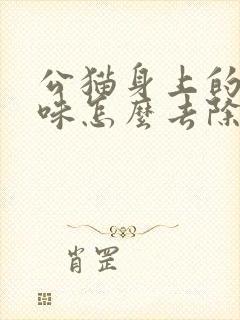 公猫身上的
味怎麽去除
肖罡